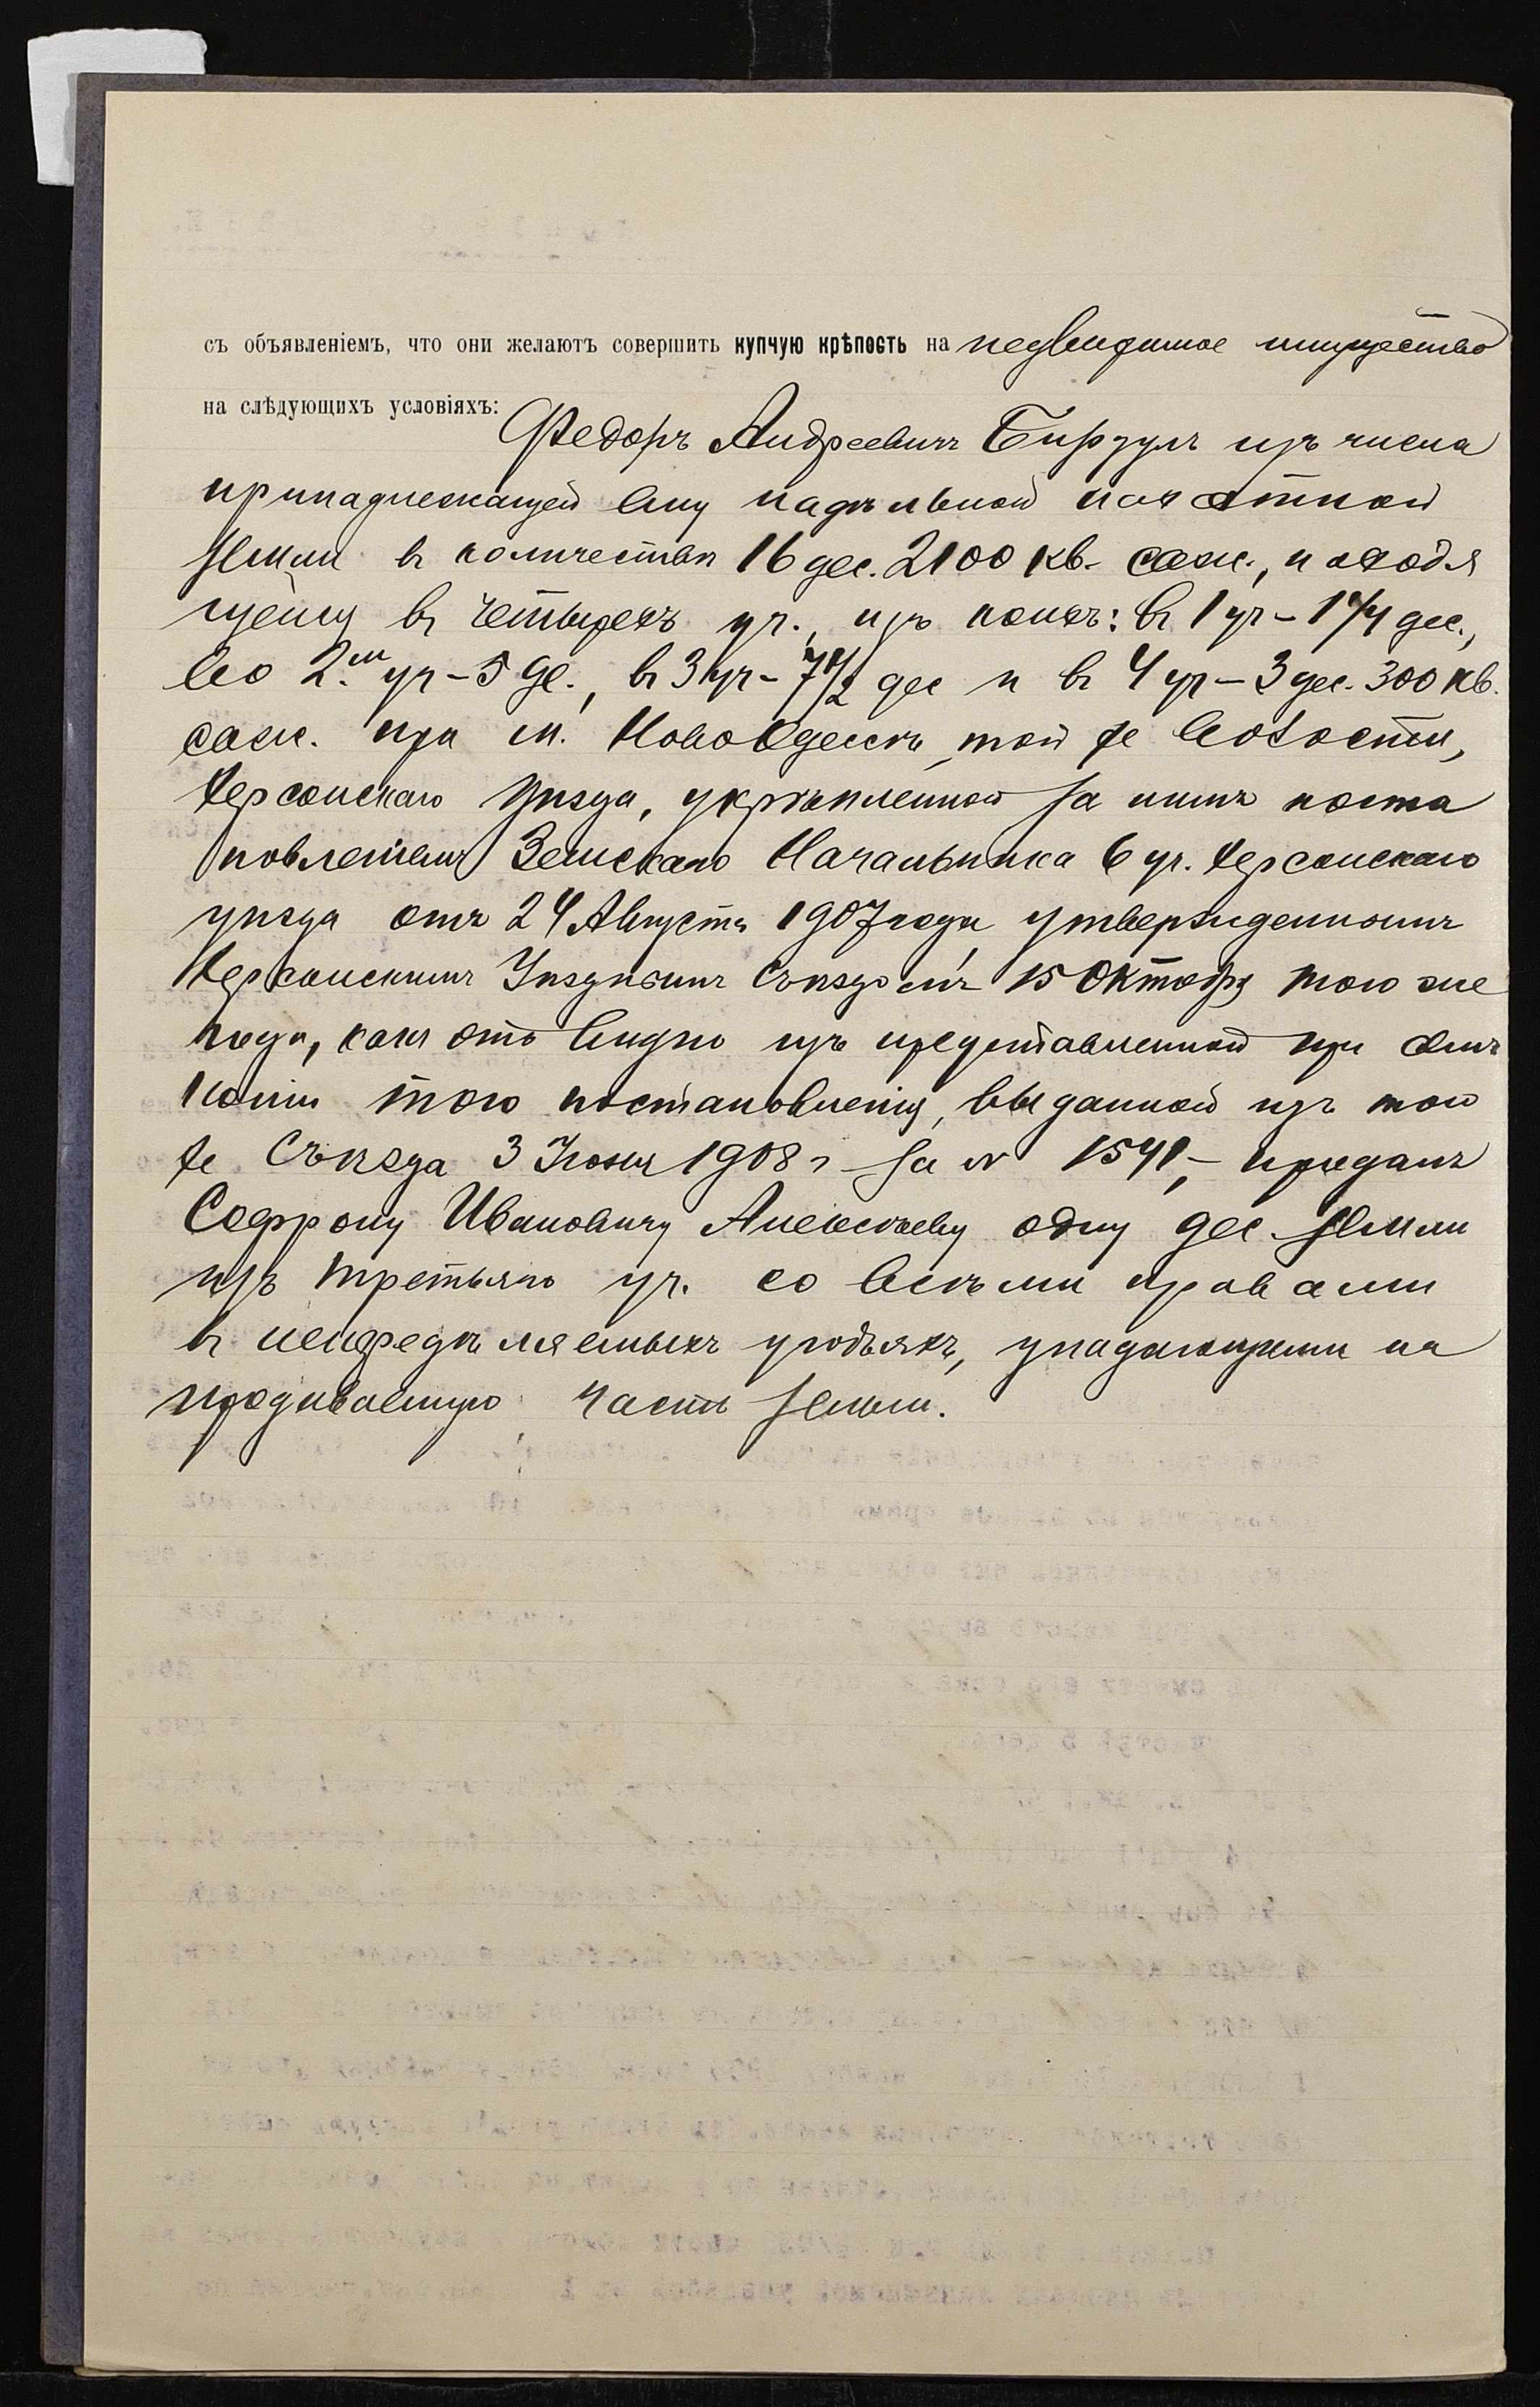 съ объявленіемъ, что они желаютъ совершить купчую крѣпость на недвижимое имущество
на слѣдующихъ условіяхъ:
Федоръ Андреевичъ Бирзулъ изъ числа
принадлежащей ему надѣльной пахатной
земли въ количествѣ 16 дес. 2100 кв. саж., находя
щейся въ четырехъ уч., изъ коихъ: въ 1 уч - 1 1/4 дес.,
во 2.м уч - 5 де., въ 3 уч - 7 1/2 дес и въ 4 уч - 3 дес. 300 кв.
саж. при м. Новой Одессѣ, той же волости,
Херсонскаго уѣзда, укрѣпленной за нимъ поста
новленіемъ Земскаго Начальника 6 уч. Херсонскаго
уѣзда отъ 24 Августа 1907 года, утвержденнымъ
Херсонскимъ Уѣзднымъ Съѣздомъ 15 Октября того же
года, какъ это видно изъ представленной при семъ
копіи того постановленія, выданной изъ того
же Съѣзда 3 Іюня 1908 г за № 1541, - продалъ
Софрону Ивановичу Алексѣеву одну дес. земли
изъ третьяго уч. со всѣми правами
въ непередѣляемыхъ угодьяхъ, упадающими на
продаваемую часть земли.